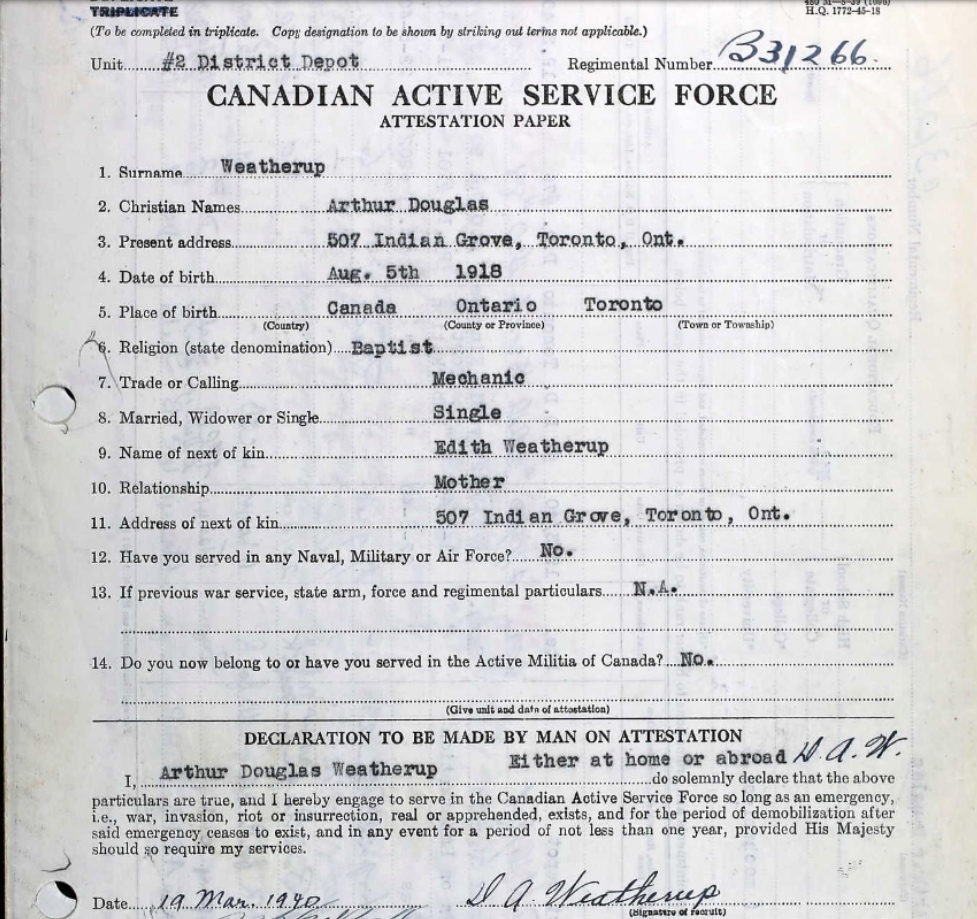 TRIPLICATE
H.Q. 1772-45-18
(To be completed in triplicate. Copy designation to be shown by striking out terms not applicable.)
Unit #2 District Depot Regimental Number B31266
CANADIAN ACTIVE SERVICE FORCE
ATTESTATION PAPER
1. Surname Weatherup
2. Christian Names Arthur Douglas
3. Present address 507 Indian Grove, Toronto, Ont.
4. Date of birth Aug. 5th 1918
5. Place of birth Canada Ontario Toronto
(Country) (County or Province) (Town or Township)
6. Religion (state denomination) Baptist
7. Trade or Calling Mechanic
8. Married, Widower or Single Single
9. Name of next of kin Edith Weatherup
10. Relationship Mother
11. Address of next of kin 507 Indian Grove, Toronto, Ont.
12. Have you served in any Naval, Military or Air Force? No.
13. If previous war service, state arm, force and regimental particulars N.A.
14. Do you now belong to or have you served in the Active Militia of Canada? No.
(Give unit and date of attestation)
DECLARATION TO BE MADE BY MAN ON ATTESTATION
Either at home or abroad D. A. W.
I, Arthur Douglas Weatherup do solemnly declare that the above
particulars are true, and I hereby engage to serve in the Canadian Active Service Force so long as an emergency,
i.e., war, invasion, riot or insurrection, real or apprehended, exists, and for the period of demobilization after
said emergency ceases to exist, and in any event for a period of not less than one year, provided His Majesty
should so require my services.
Date 19 Mar. 1940 D A Weatherup
(Signature of recruit)